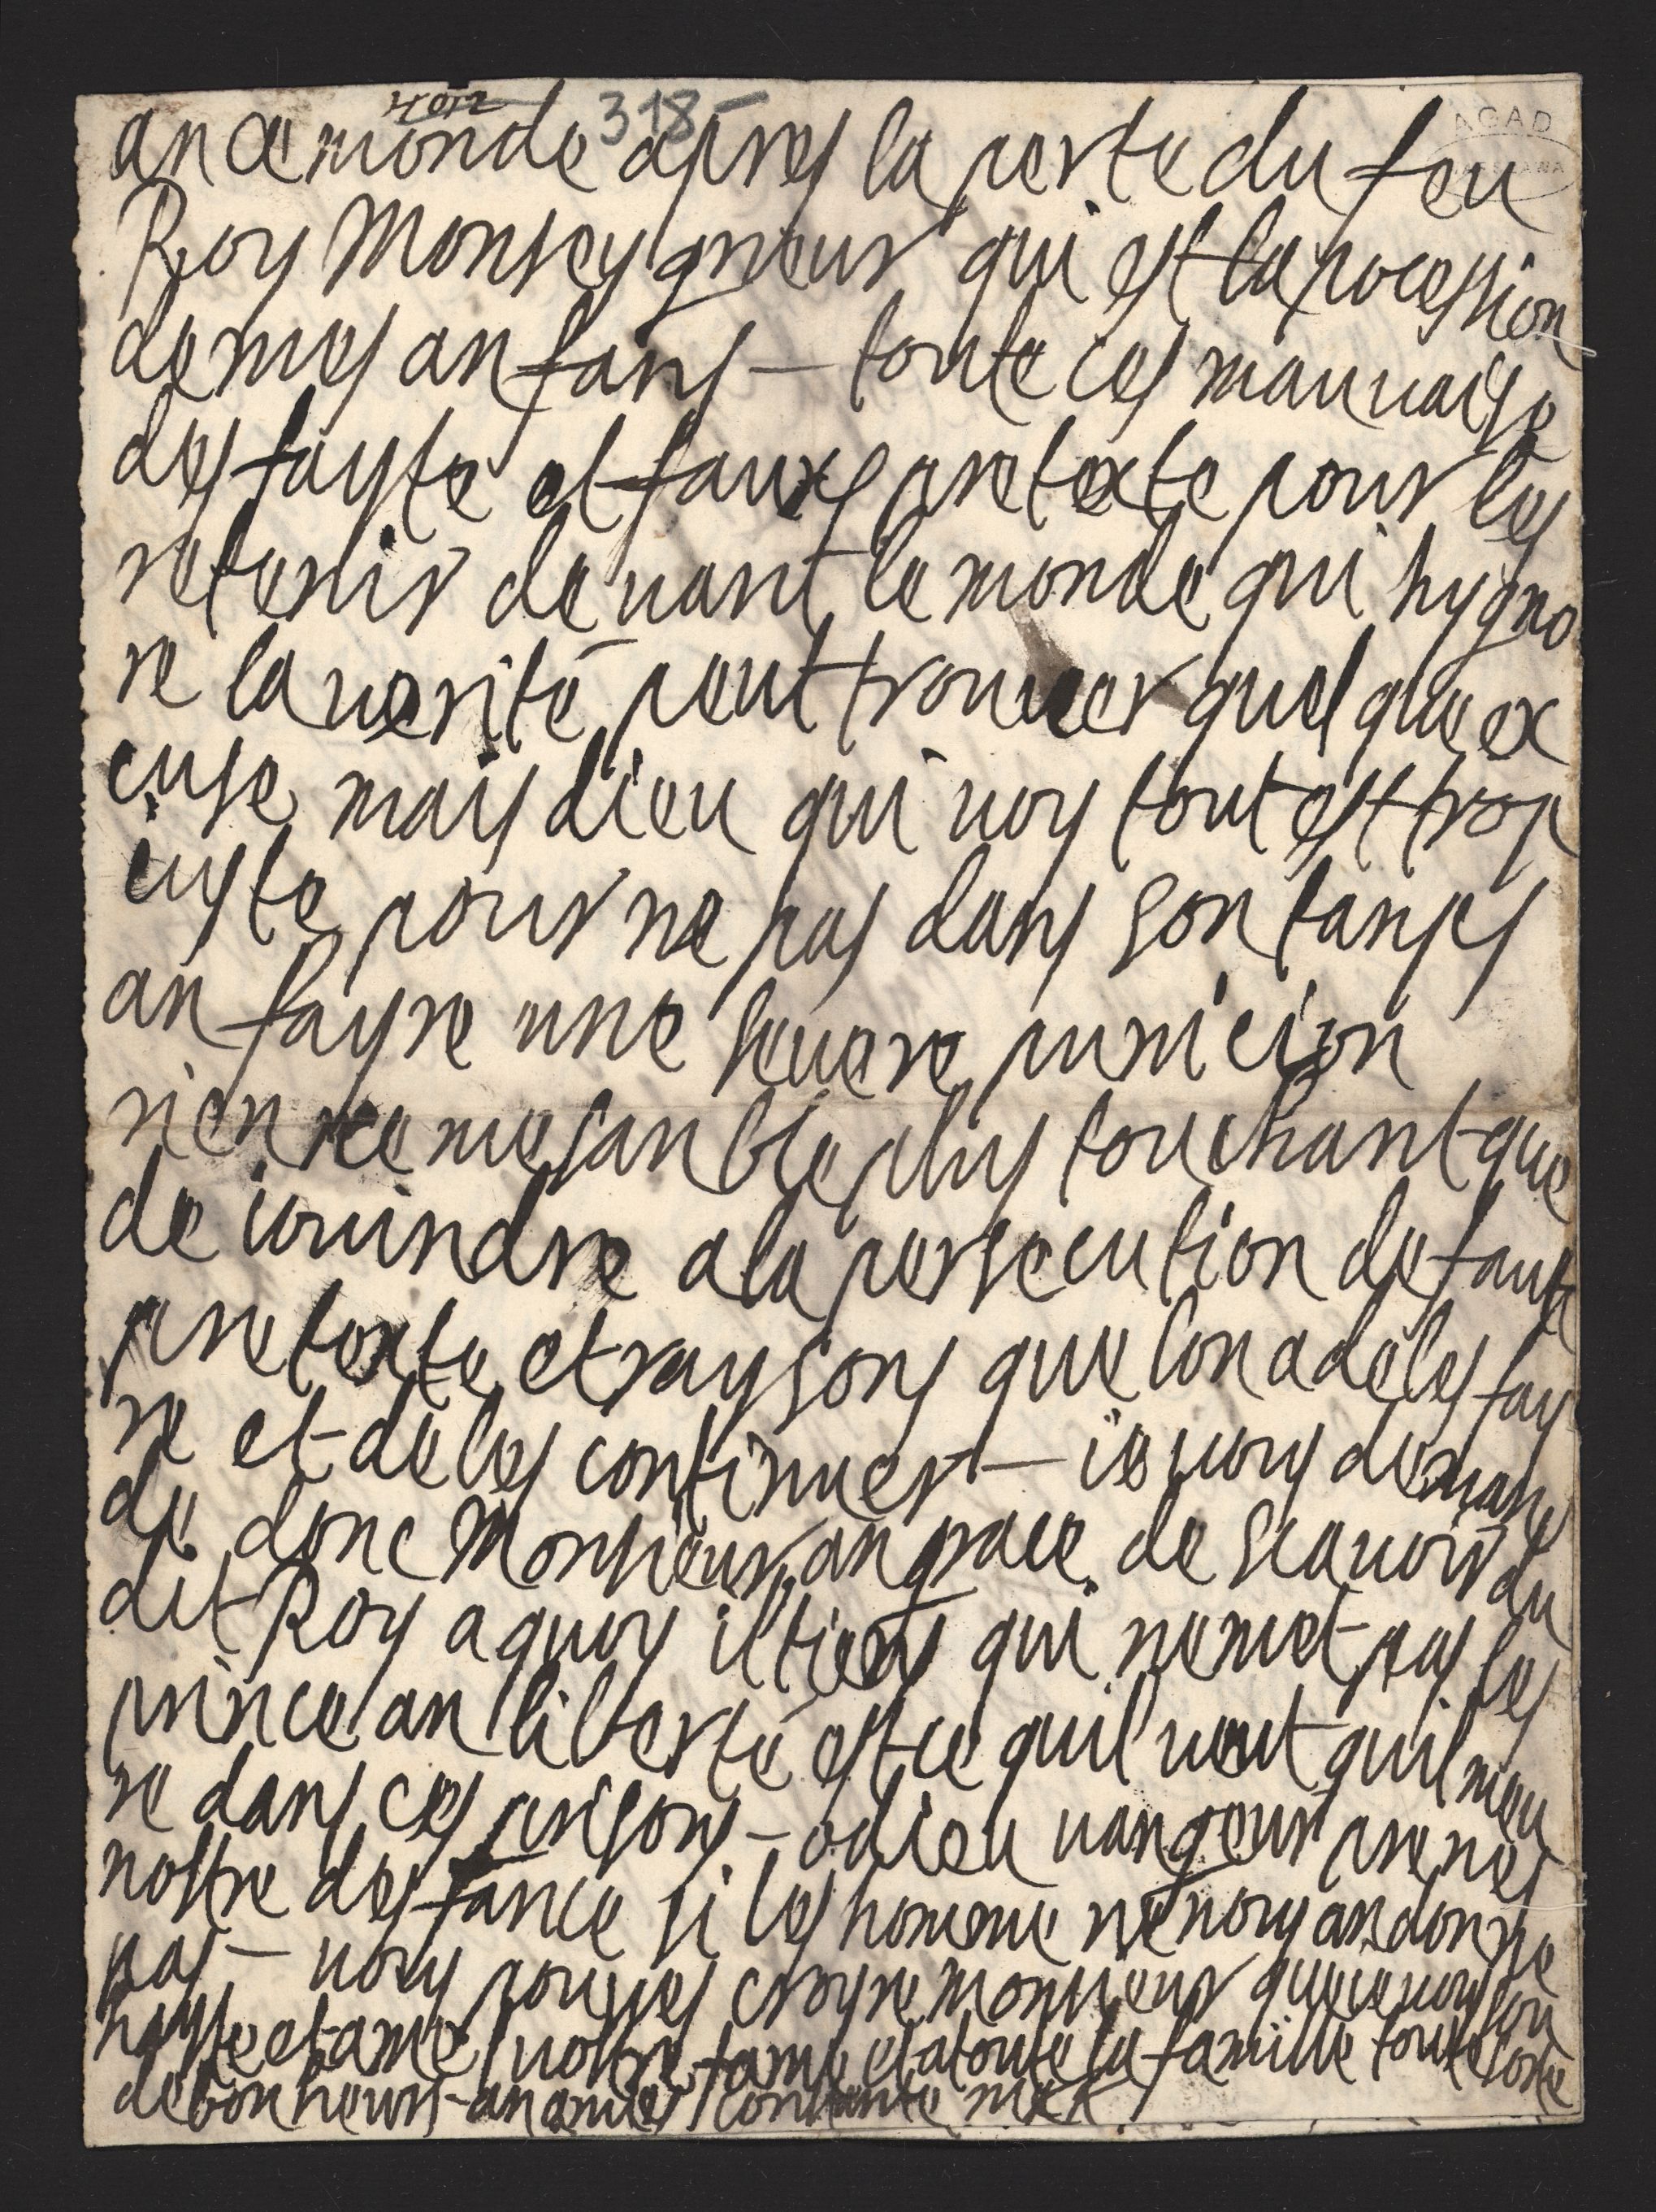 318
an ce monde apres la perte du feu
Roy Monseygneur qui est la pocession
de mes anfans – toute ces mauuaise
desfayte et faux pretexte pour les
retenir deuant le monde qui hygno
re la uerité peut trouuer quelque ex
cuse mais dieu qui uoy tout est trop
iuste pour ne pas dans son tamps
an fayre une seuere punicion
rien ne me sanble plus touchant que
de iouindre a la persecution de faux
pretexte et raysons que lon a de les fay
re et de les continuer – ie uous deman
de donc Monsieur an grace de scauoir du
dit Roy a quoy il tient qui ne met pas les
prince an liberté est ce quil ueut quil meu
re dans ces prisons – o dieu uangeur prenes
nostre desfance si les homme ne nous an donne
pas – uous pouues croyre Monsieur que ie uous sou
hayte et a me uostre famme et a toute la famille toute sorte
de bonheurs – an amies constante